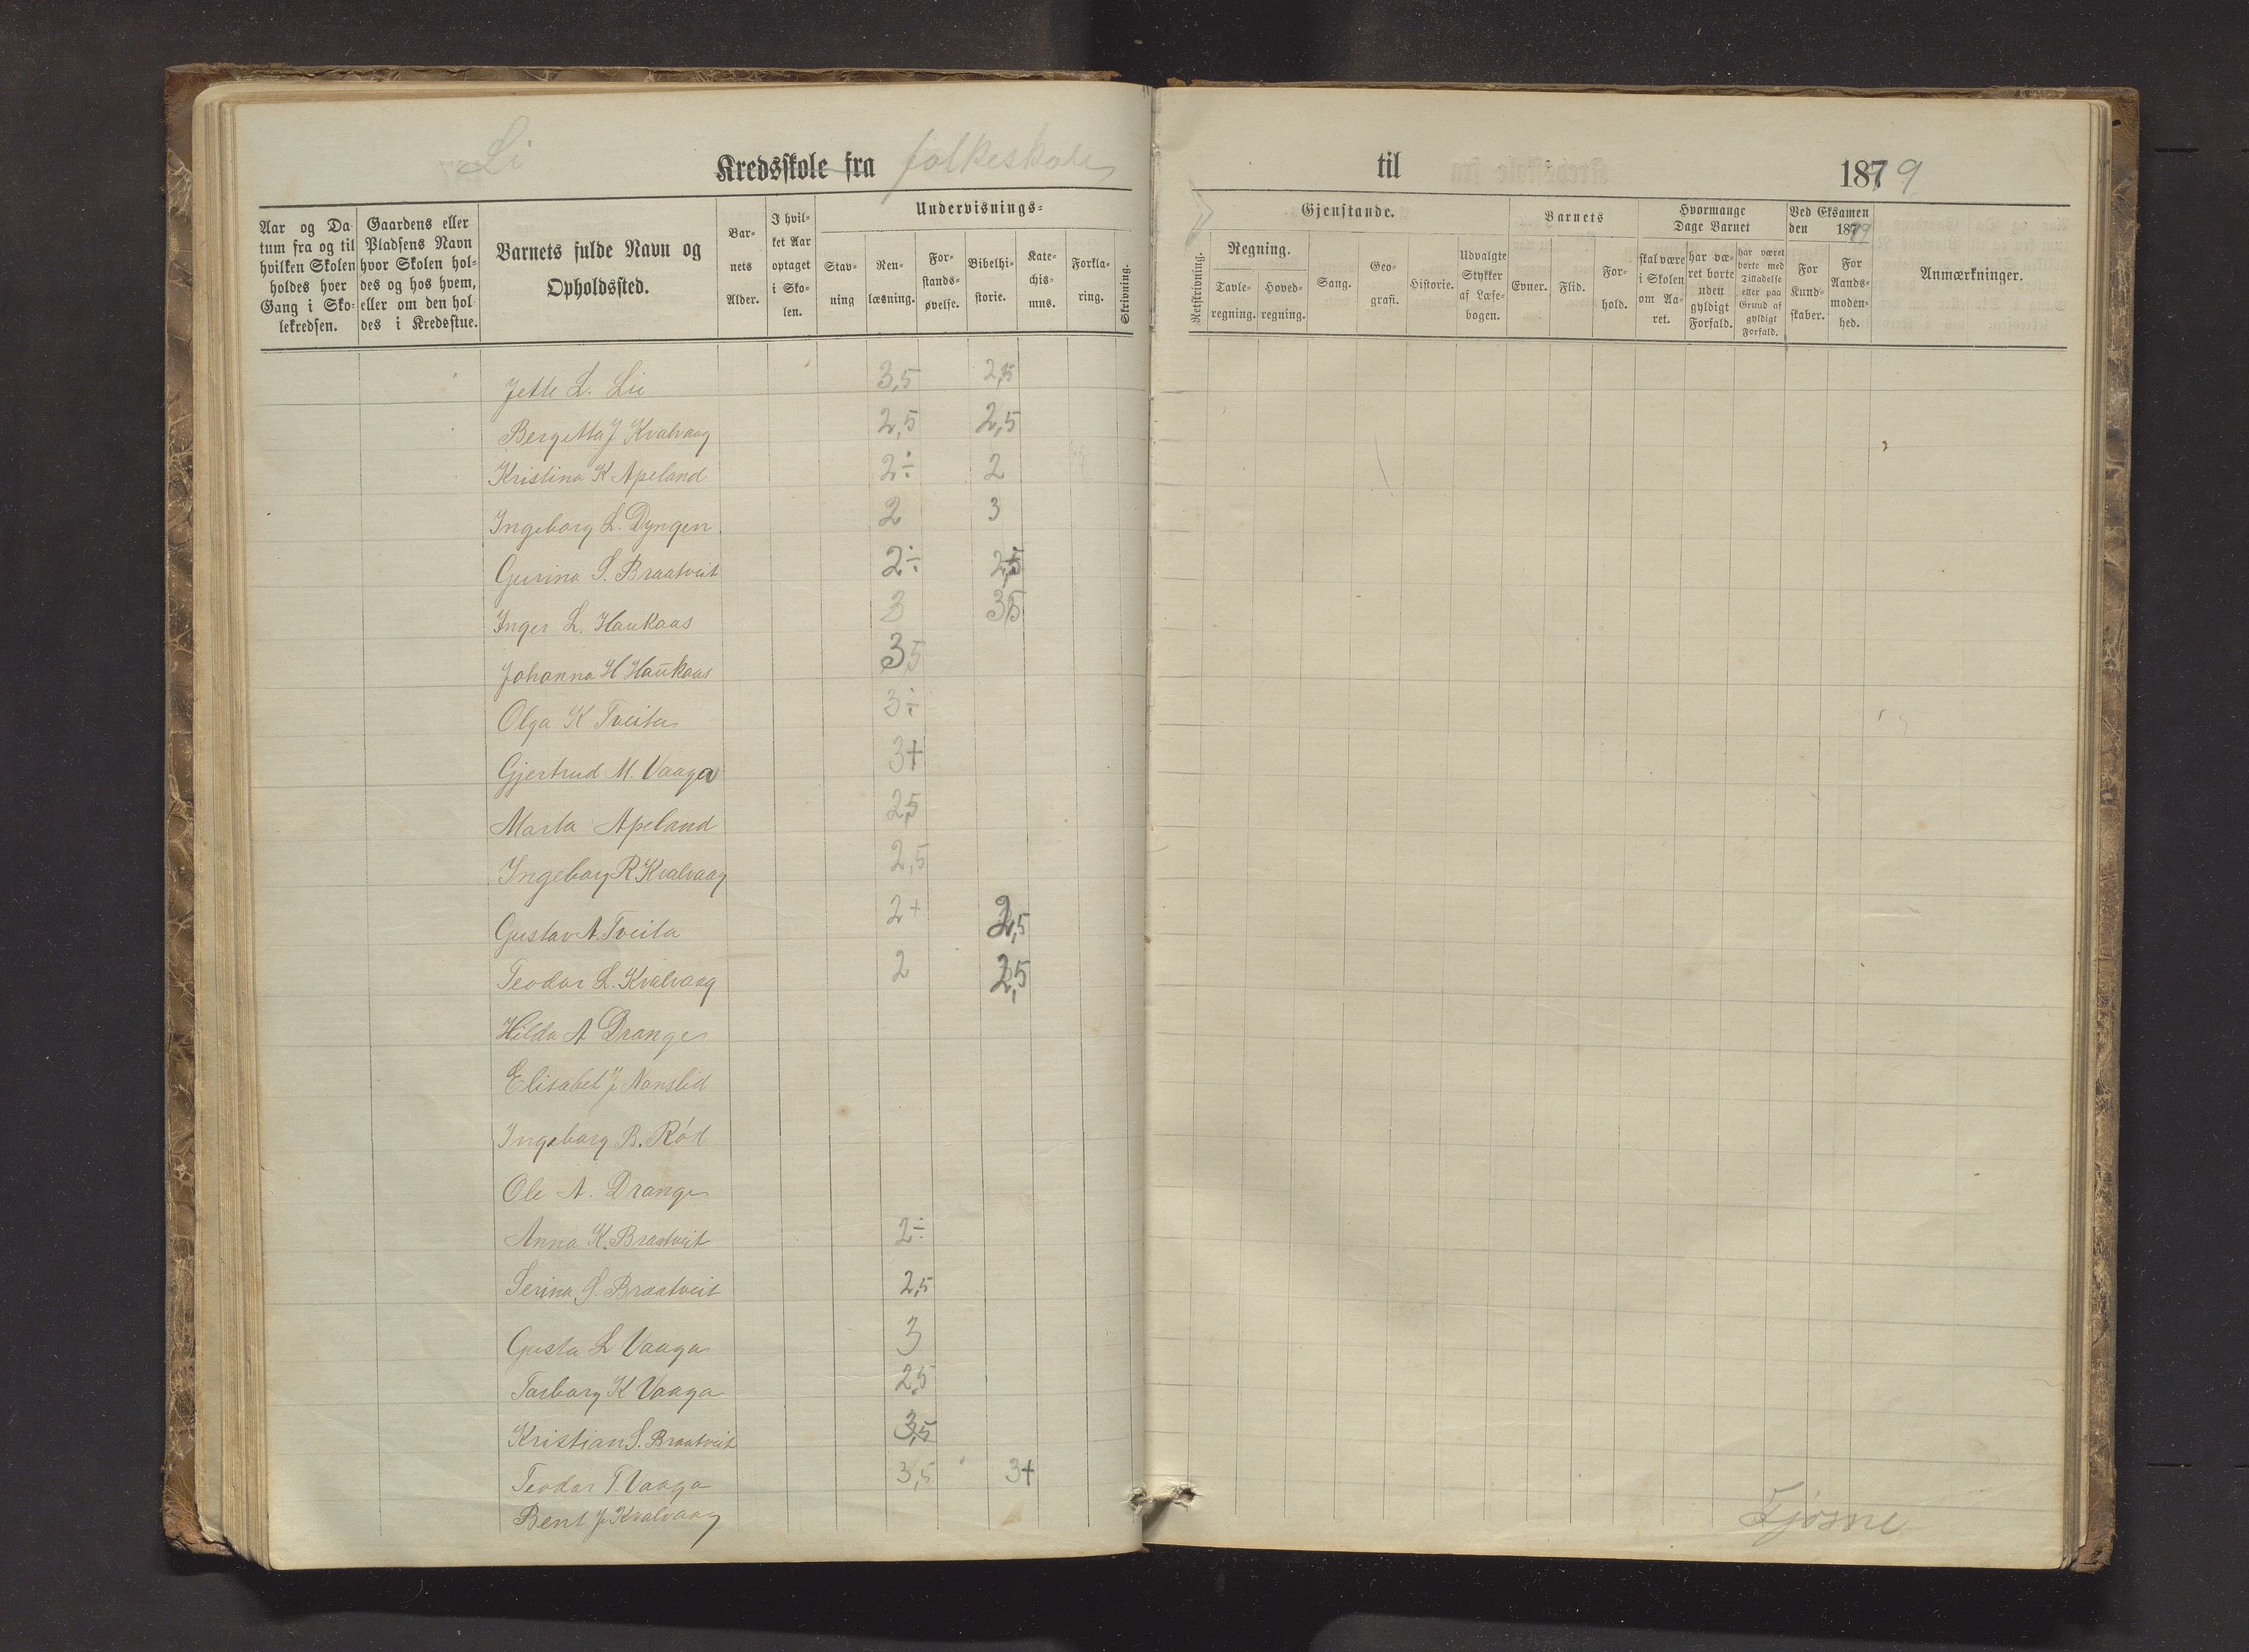 Li Kredsskole fra folkeskole til 1879
Undervisnings- Gjenstande. Barnets Hvormange Dage Barnet Ved Eksamen den 1879
Aar og Datum fra og til hvilken Skolen holdes hver Gang i Skolekredsen.
Gaardens eller Pladsens Navn hvor Skolen holdes og hos hvem, eller om den holdes i Kredsstue.
Barnets fulde Navn og Opholdssted.
Barnets Alder.
I hvilket Aar optaget i Skolen.
Stavning
Renlæsning.
Forstandsøvelse.
Bibelhistorie.
Katechismus.
Forklaring.
Skrivning.
Retskrivning.
Regning.
Tavleregning.
Hovedregning.
Sang.
Geografi.
Historie.
Udvalgte Stykker af Læsebogen.
Evner.
Flid.
Forhold.
skal være i Skolen om Aaret.
har været borte uden gyldigt Forfald.
har været borte med Tilladelse eller paa Grund af gyldigt Forfald.
For Kundskaber.
For Aandsmodenhed.
Anmærkninger.
Jette L. Lie 3,5 2,5
Bergitta J Kvalvaag 2,5 2,5
Kristina K Apeland 2÷ 2
Ingeborg L. Dyngen 2 3
Gurina S. Braatveit 2÷ 2,5
Inger L. Haukaas 3 3,5
Johanna H Haukaas 3,5
Olga K Tveita 3÷
Gjertrud M. Vaaga 3+
Marta Apeland 2,5
Ingeborg R Kvalvaag 2,5
Gustav A. Tveita 2+ 2,5
Teodor L. Kvalvaag 2 2,5
Hilda A Drange
Elisabet J. Nanslid
Ingeborg B. Röd
Ole A. Drange
Anna K. Braatveit 2÷
Serina S. Braatveit 2,5
Gusta L Vaaga 3
Torborg K Vaaga 2,5
Kristian S. Braatveit 3,5
Teodor T. Vaaga 3,5 3+
Bent J Kvalvaag
Fjösne